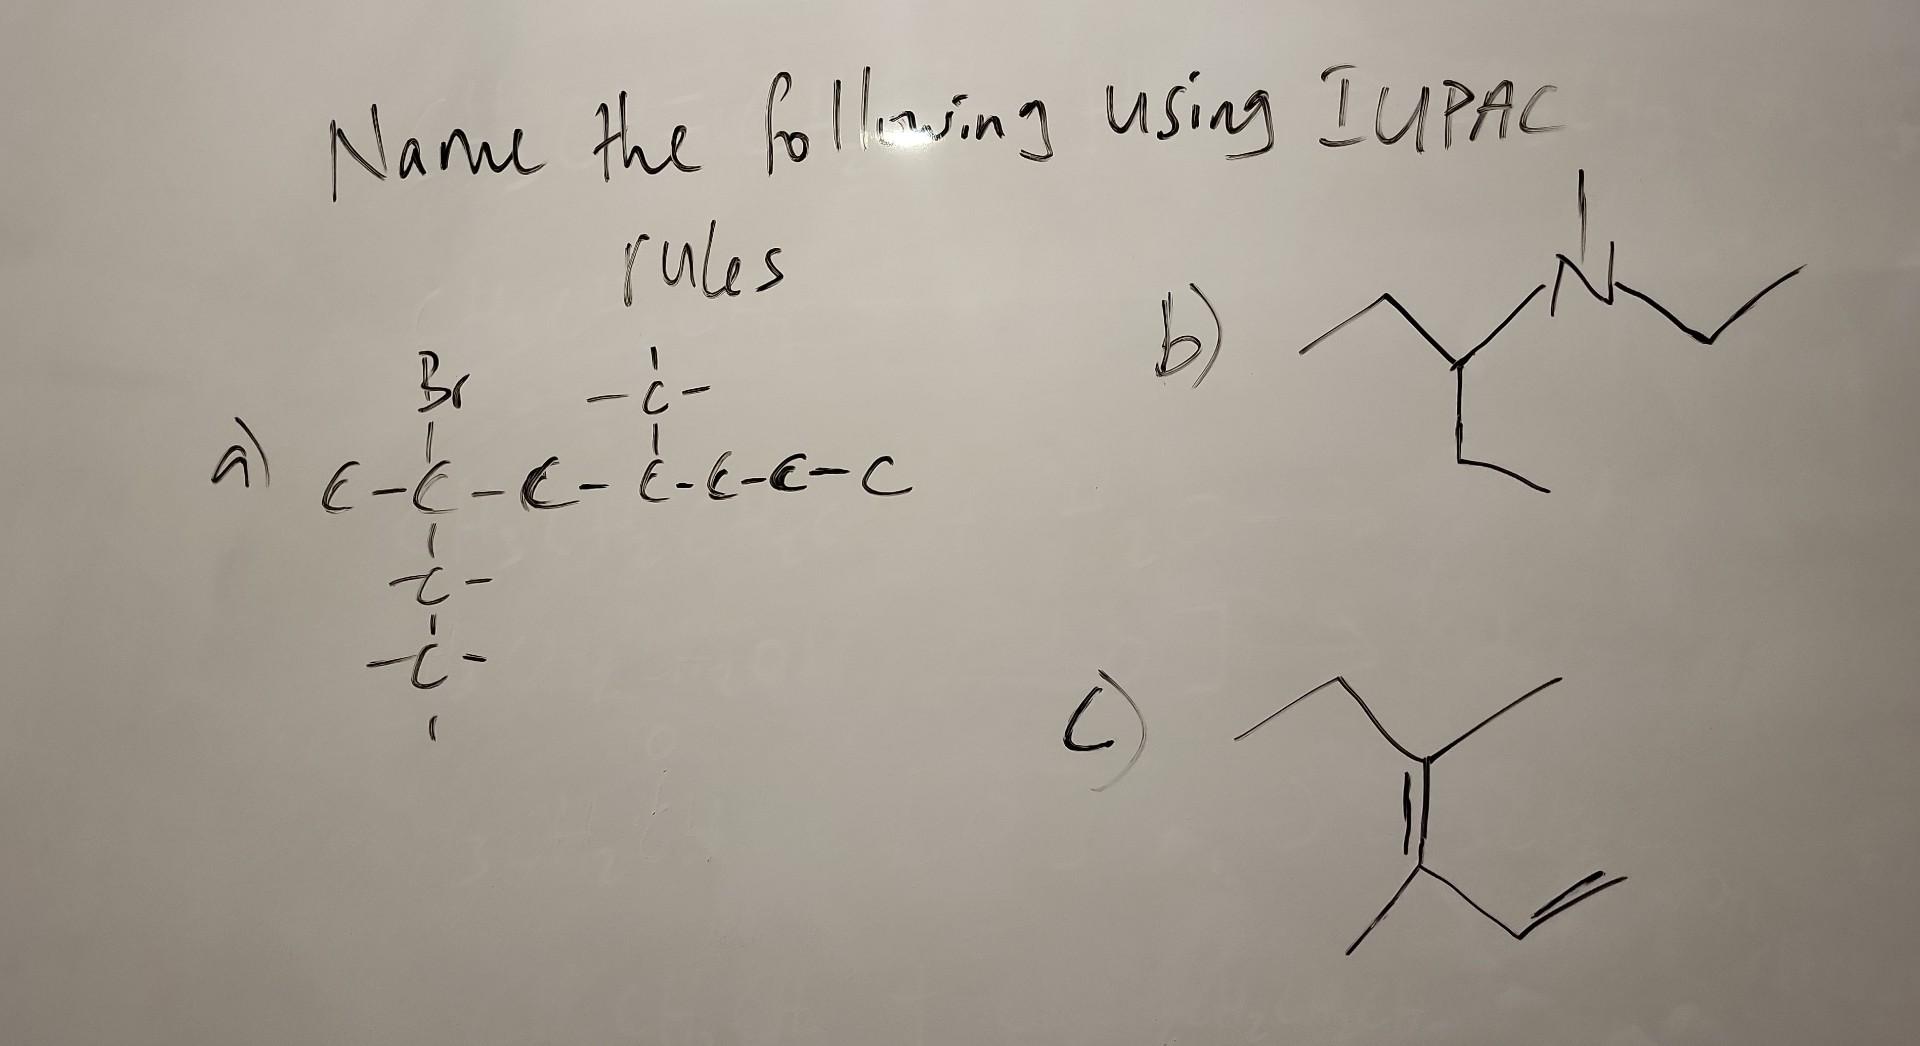 Name the following using IUPAC
rules
a)
Br
-C-
C-C-C-C-C-C-C
-C-
-C-
b)
N
c)